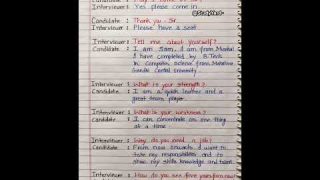 Interviewer : Yes please come in
Candidate : Thank you Sir
Interviewer : Please have a seat
Interviewer : Tell me about yourself?
Candidate : I am Sam. I am from Mumbai
I have completed my B.Tech
in Computer Science from Mahatma
Gandhi Central University.
Interviewer : What is your strength?
Candidate : I am a quick learner and a
great team player.
Interviewer : What is your weakness?
Candidate : I can concentrate on one thing
at a time.
Interviewer : Why do you need a job?
Candidate : From now onwards I want to
take my responsibilities and to
show my skills knowledge and talent
Interviewer : How do you see five years from now?